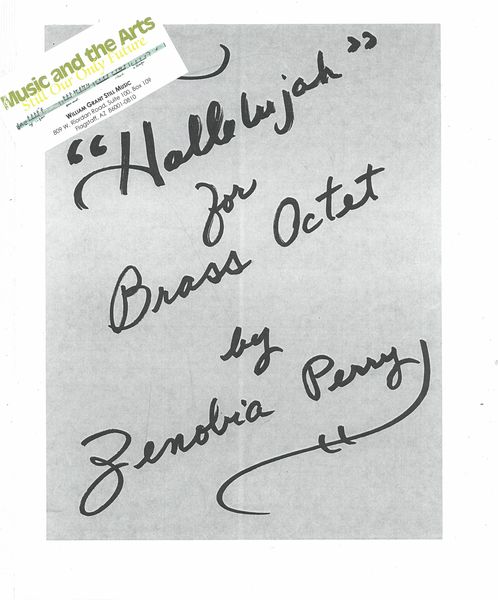 Music and the Arts
Still Our Only Future
WILLIAM GRANT STILL MUSIC
809 W. Riordan Road, Suite 100, Box 109
Flagstaff, AZ 86001-0810
“Hallelujah”
for
Brass Octet
by
Zenobia Perry